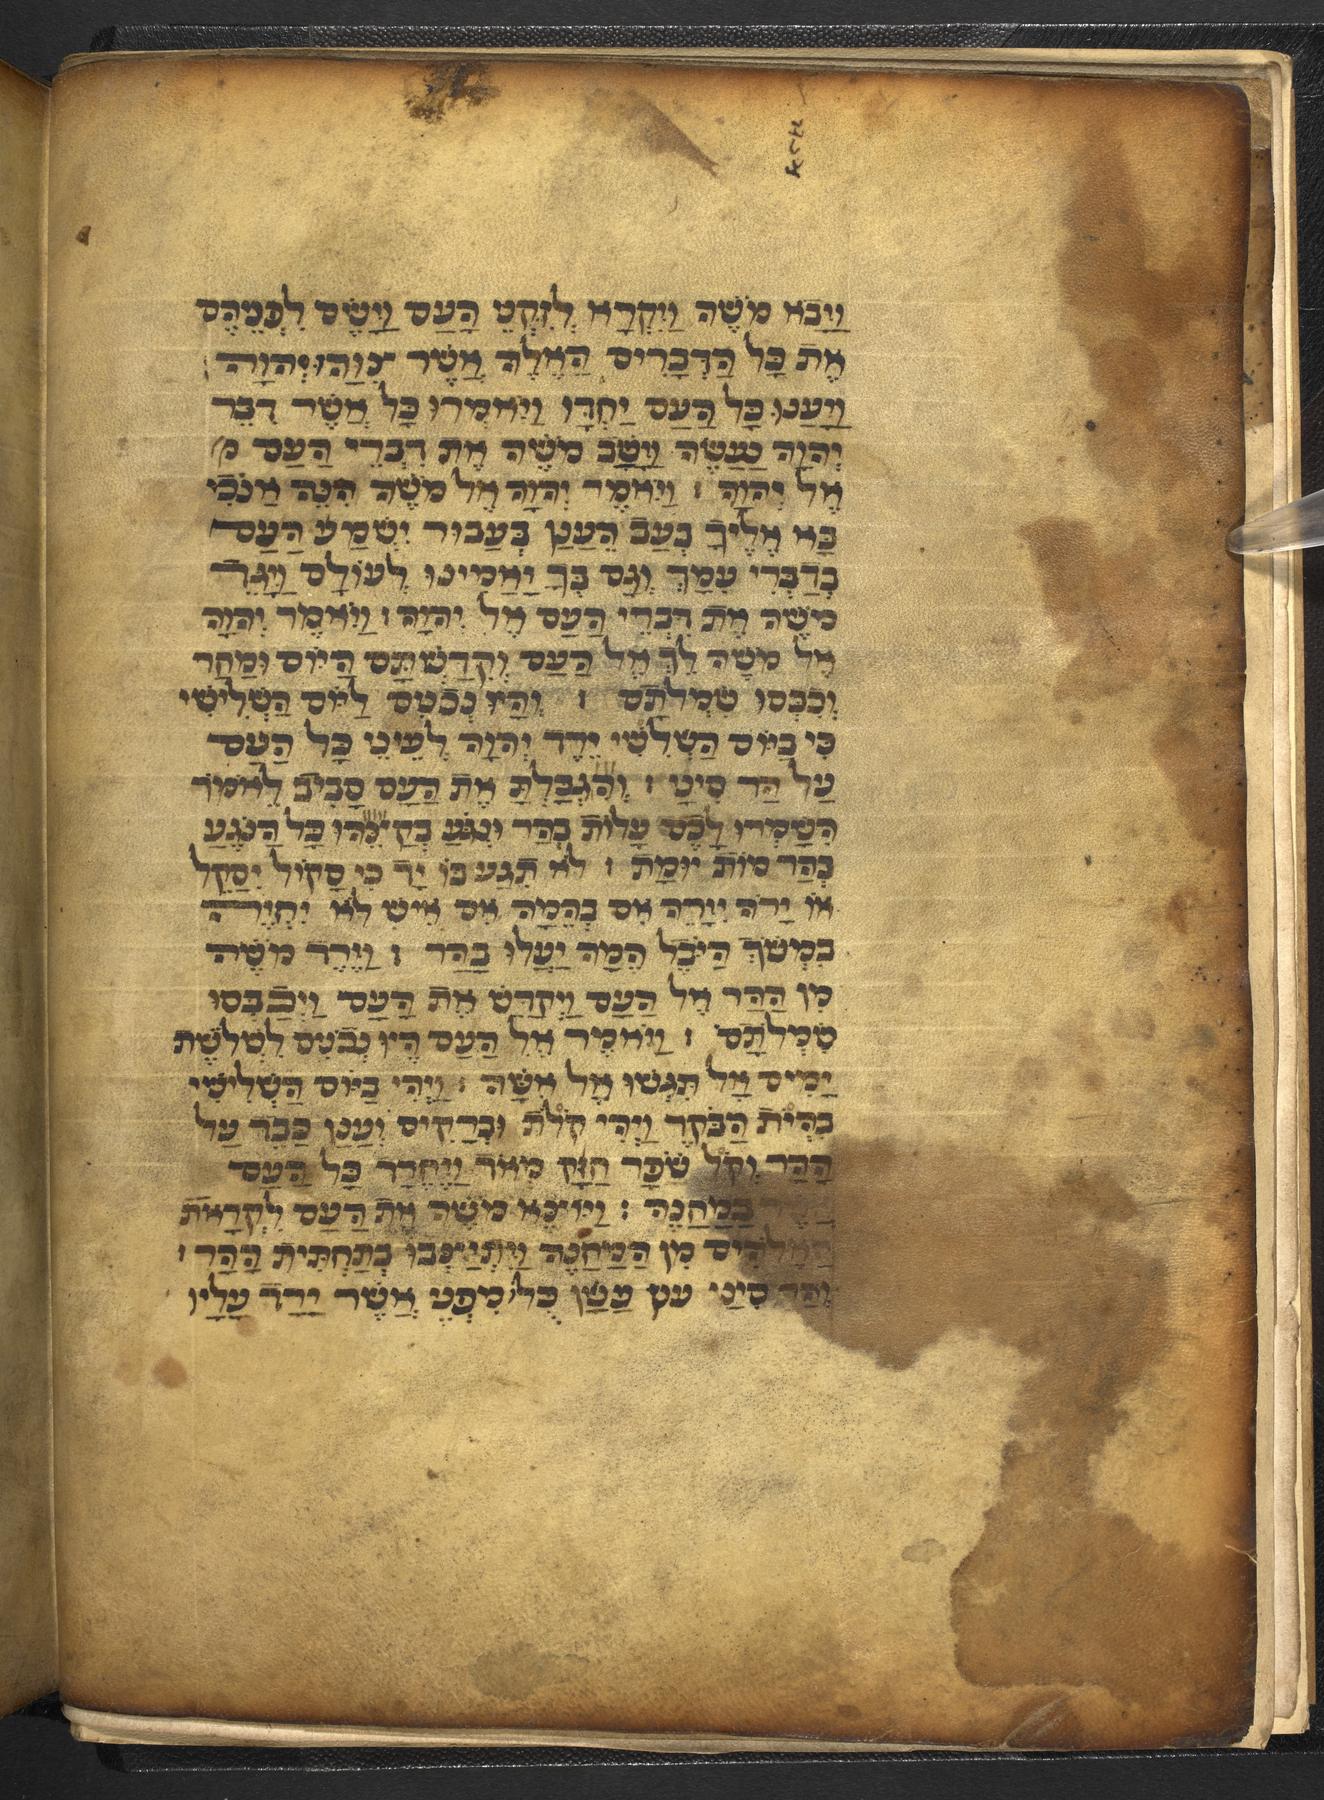 וַיָּבֹא מֹשֶׁה וַיִּקְרָא לְזִקְנֵי הָעָם וַיָּשֶׂם לִפְנֵיהֶם
אֵת כָּל הַדְּבָרִים הָאֵלֶּה אֲשֶׁר צִוָּהוּ יְהוָה׃
וַיַּעֲנוּ כָל הָעָם יַחְדָּו וַיֹּאמְרוּ כָּל אֲשֶׁר דִּבֶּר
יְהוָה נַעֲשֶׂה וַיָּשֶׁב מֹשֶׁה אֶת דִּבְרֵי הָעָם
אֶל יְהוָה׃ וַיֹּאמֶר יְהוָה אֶל מֹשֶׁה הִנֵּה אָנֹכִי
בָּא אֵלֶיךָ בְּעַב הֶעָנָן בַּעֲבוּר יִשְׁמַע הָעָם
בְּדַבְּרִי עִמָּךְ וְגַם בְּךָ יַאֲמִינוּ לְעוֹלָם וַיַּגֵּד
מֹשֶׁה אֶת דִּבְרֵי הָעָם אֶל יְהוָה׃ וַיֹּאמֶר יְהוָה
אֶל מֹשֶׁה לֵךְ אֶל הָעָם וְקִדַּשְׁתָּם הַיּוֹם וּמָחָר
וְכִבְּסוּ שִׂמְלֹתָם׃ וְהָיוּ נְכֹנִים לַיּוֹם הַשְּׁלִישִׁי
כִּי בַּיּוֹם הַשְּׁלִשִׁי יֵרֵד יְהוָה לְעֵינֵי כָל הָעָם
עַל הַר סִינָי׃ וְהִגְבַּלְתָּ אֶת הָעָם סָבִיב לֵאמֹר
הִשָּׁמְרוּ לָכֶם עֲלוֹת בָּהָר וּנְגֹעַ בְּקָצֵהוּ כָּל הַנֹּגֵעַ
בָּהָר מוֹת יוּמָת׃ לֹא תִגַּע בּוֹ יָד כִּי סָקוֹל יִסָּקֵל
אוֹ יָרֹה יִיָּרֶה אִם בְּהֵמָה אִם אִישׁ לֹא יִחְיֶה
בִּמְשֹׁךְ הַיֹּבֵל הֵמָּה יַעֲלוּ בָהָר׃ וַיֵּרֶד מֹשֶׁה
מִן הָהָר אֶל הָעָם וַיְקַדֵּשׁ אֶת הָעָם וַיְכַבְּסוּ
שִׂמְלֹתָם׃ וַיֹּאמֶר אֶל הָעָם הֱיוּ נְכֹנִים לִשְׁלֹשֶׁת
יָמִים אַל תִּגְּשׁוּ אֶל אִשָּׁה׃ וַיְהִי בַיּוֹם הַשְּׁלִישִׁי
בִּהְיֹת הַבֹּקֶר וַיְהִי קֹלֹת וּבְרָקִים וְעָנָן כָּבֵד עַל
הָהָר וְקֹל שֹׁפָר חָזָק מְאֹד וַיֶּחֱרַד כָּל הָעָם
אֲשֶׁר בַּמַּחֲנֶה׃ וַיּוֹצֵא מֹשֶׁה אֶת הָעָם לִקְרַאת
הָאֱלֹהִים מִן הַמַּחֲנֶה וַיִּתְיַצְּבוּ בְּתַחְתִּית הָהָר׃
וְהַר סִינַי עָשַׁן כֻּלּוֹ מִפְּנֵי אֲשֶׁר יָרַד עָלָיו